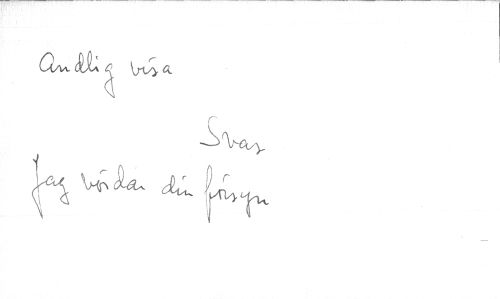 Andlig visa
Svar
Jag vördar din försyn